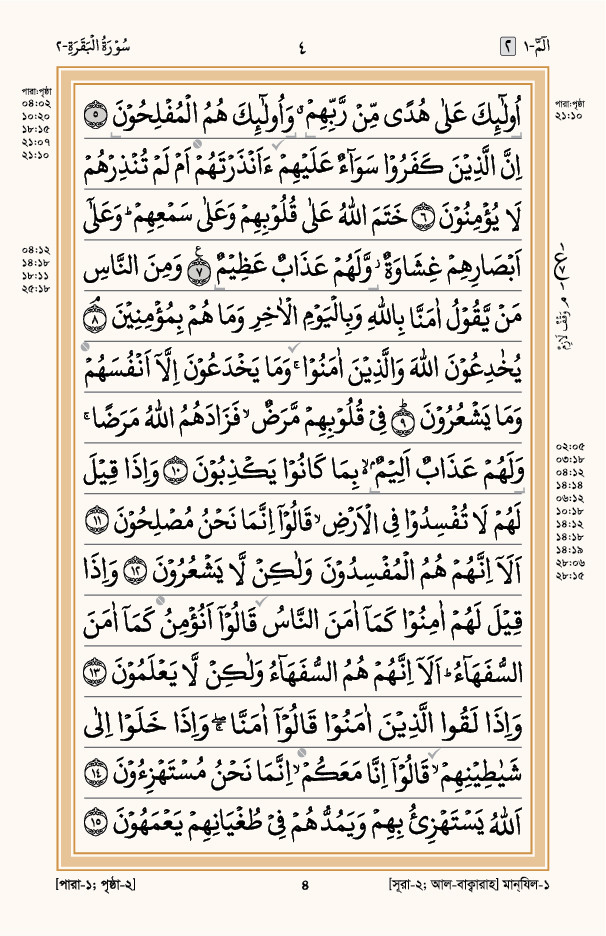 الٓمّٓ-١ ٢ ٤ سُوْرَةُ الْبَقَرَةِ-٢
اُولٰٓئِكَ عَلٰى هُدًى مِّنْ رَّبِّهِمْ ۙ وَاُولٰٓئِكَ هُمُ الْمُفْلِحُوْنَ ۝٥
اِنَّ الَّذِيْنَ كَفَرُوْا سَوَآءٌ عَلَيْهِمْ ءَاَنْذَرْتَهُمْ اَمْ لَمْ تُنْذِرْهُمْ
لَا يُؤْمِنُوْنَ ۝٦ خَتَمَ اللّٰهُ عَلٰى قُلُوْبِهِمْ وَعَلٰى سَمْعِهِمْ ؕ وَعَلٰٓى
اَبْصَارِهِمْ غِشَاوَةٌ ؗ وَّلَهُمْ عَذَابٌ عَظِيْمٌ ۝٧ وَمِنَ النَّاسِ
مَنْ يَّقُوْلُ اٰمَنَّا بِاللّٰهِ وَبِالْيَوْمِ الْاٰخِرِ وَمَا هُمْ بِمُؤْمِنِيْنَ ۝٨
يُخٰدِعُوْنَ اللّٰهَ وَالَّذِيْنَ اٰمَنُوْا ۚ وَمَا يَخْدَعُوْنَ اِلَّآ اَنْفُسَهُمْ
وَمَا يَشْعُرُوْنَ ۝٩ فِيْ قُلُوْبِهِمْ مَّرَضٌ ۙ فَزَادَهُمُ اللّٰهُ مَرَضًا ۚ
وَلَهُمْ عَذَابٌ اَلِيْمٌ ۢ ۙ بِمَا كَانُوْا يَكْذِبُوْنَ ۝١٠ وَاِذَا قِيْلَ
لَهُمْ لَا تُفْسِدُوْا فِى الْاَرْضِ ۙ قَالُوْٓا اِنَّمَا نَحْنُ مُصْلِحُوْنَ ۝١١
اَلَآ اِنَّهُمْ هُمُ الْمُفْسِدُوْنَ وَلٰكِنْ لَّا يَشْعُرُوْنَ ۝١٢ وَاِذَا
قِيْلَ لَهُمْ اٰمِنُوْا كَمَآ اٰمَنَ النَّاسُ قَالُوْٓا اَنُؤْمِنُ كَمَآ اٰمَنَ
السُّفَهَآءُ ؕ اَلَآ اِنَّهُمْ هُمُ السُّفَهَآءُ وَلٰكِنْ لَّا يَعْلَمُوْنَ ۝١٣
وَاِذَا لَقُوا الَّذِيْنَ اٰمَنُوْا قَالُوْٓا اٰمَنَّا ۖۚ وَاِذَا خَلَوْا اِلٰى
شَيٰطِيْنِهِمْ ۙ قَالُوْٓا اِنَّا مَعَكُمْ ۙ اِنَّمَا نَحْنُ مُسْتَهْزِءُوْنَ ۝١٤
اَللّٰهُ يَسْتَهْزِئُ بِهِمْ وَيَمُدُّهُمْ فِيْ طُغْيَانِهِمْ يَعْمَهُوْنَ ۝١٥
পারা:পৃষ্ঠা
০৪:০২
১০:২০
১৮:১৫
২১:০৭
২১:১০
০৪:১২
১৪:১৮
১৮:১১
২৫:১৮
পারা:পৃষ্ঠা
২১:১০
ع
٧
م وَقْفْ لَازِمْ
০২:০৫
০৩:১৮
০৪:১২
১৪:১৪
০৬:১২
১০:১৮
১৪:১২
১৪:১৮
১৪:১৯
২৮:০৬
২৮:১৫
[পারা-১; পৃষ্ঠা-২] ৪ [সূরা-২; আল-বাক্বারাহ] মান্‌যিল-১